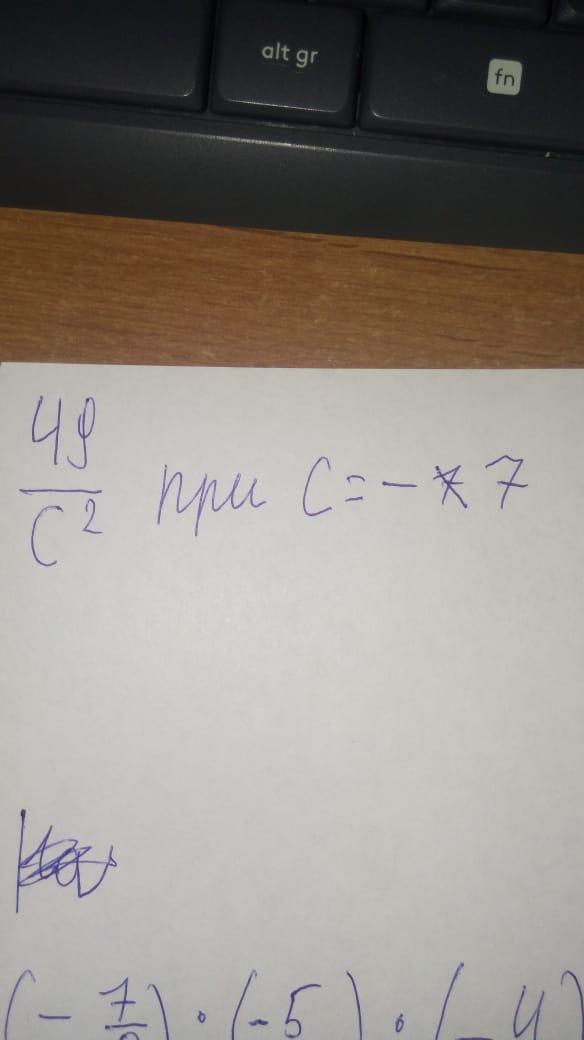 alt gr
fn
49/c² при c = - 7
(- 7/) · (-5) · (-4)